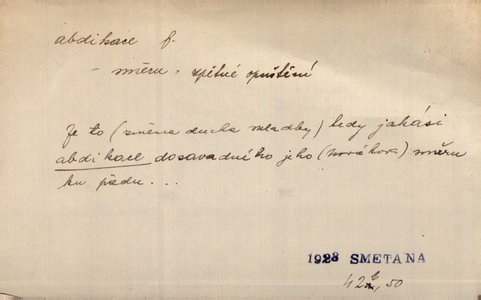 abdikace f.
- směru = zpětné opuštění
Je to (směna ducha skladby) tedy jakási
abdikace dosavadného jeho (Novákova) směru
ku pádu...
1928 SMETANA
42, 50